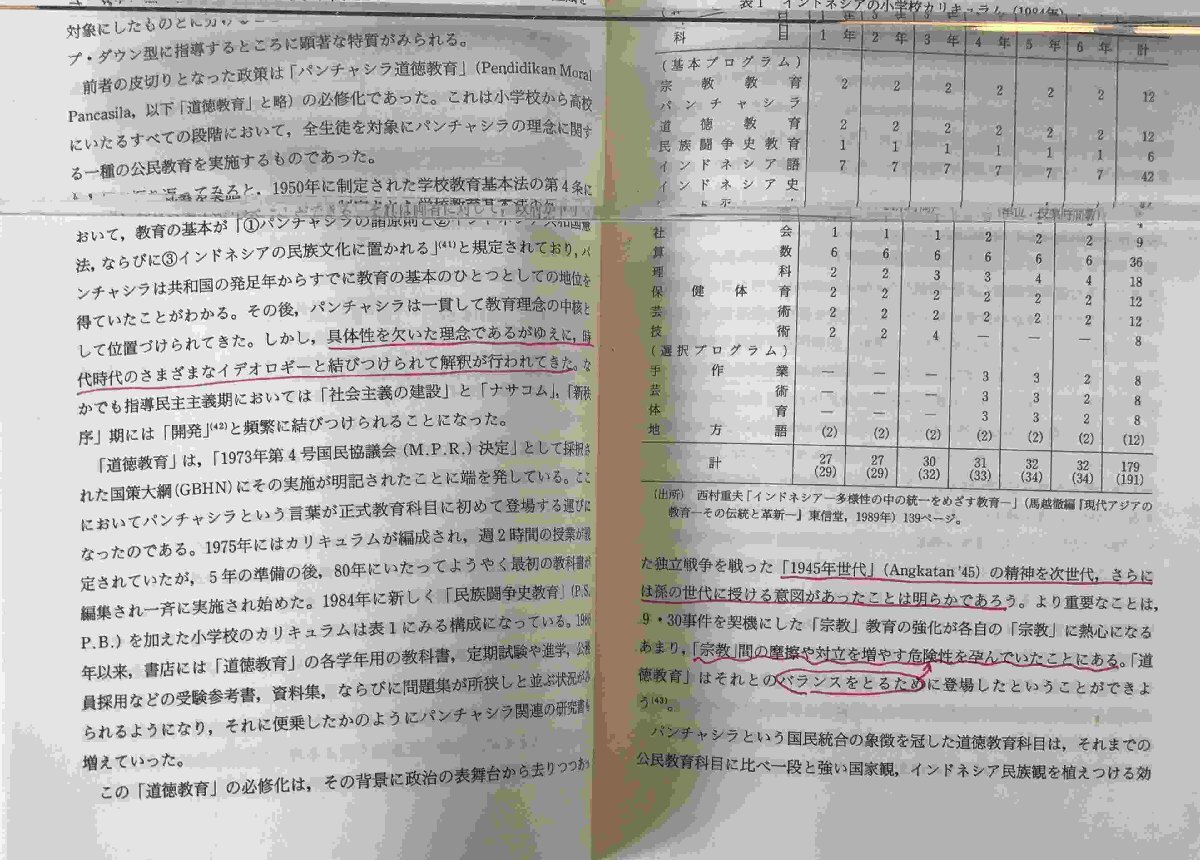 対象にしたものと
プ・ダウン型に指導するところに顕著な特質がみられる。
前者の皮切りとなった政策は「パンチャシラ道徳教育」(Pendidikan Moral
Pancasila, 以下「道徳教育」と略) の必修化であった。これは小学校から高校
にいたるすべての段階において, 全生徒を対象にパンチャシラの理念に関す
る一種の公民教育を実施するものであった。
てみると, 1950年に制定された学校教育基本法の第4条に
おいて, 教育の基本が「①パンチャシラの諸原則と②
法, ならびに③インドネシアの民族文化に置かれる」(41)と規定されており, パ
ンチャシラは共和国の発足年からすでに教育の基本のひとつとしての地位を
得ていたことがわかる。その後, パンチャシラは一貫して教育理念の中核と
して位置づけられてきた。しかし, 具体性を欠いた理念であるがゆえに, 時
代時代のさまざまなイデオロギーと結びつけられて解釈が行われてきた。な
かでも指導民主主義期においては「社会主義の建設」と「ナサコム」, 「新秩
序」期には「開発」(42)と頻繁に結びつけられることになった。
「道徳教育」は, 「1973年第4号国民協議会 (M.P.R.) 決定」として採択さ
れた国策大綱(GBHN)にその実施が明記されたことに端を発している。ここ
においてパンチャシラという言葉が正式教育科目に初めて登場する運びに
なったのである。1975年にはカリキュラムが編成され, 週2時間の授業が
定されていたが, 5年の準備の後, 80年にいたってようやく最初の教科書が
編集され一斉に実施され始めた。1984年に新しく「民族闘争史教育」(P.S.
P.B.) を加えた小学校のカリキュラムは表1にみる構成になっている。
年以来, 書店には「道徳教育」の各学年用の教科書, 定期試験や進学, 公務
員採用などの受験参考書, 資料集, ならびに問題集が所狭しと並ぶ状況が
られるようになり, それに便乗したかのようにパンチャシラ関連の研究書も
増えていった。
この「道徳教育」の必修化は, その背景に政治の表舞台から去りつつあ
表1 インドネシアの小学校カリキュラム (1984年)
科目 1年 2年 3年 4年 5年 6年 計
(基本プログラム)
宗教教育 2 2 2 2 2 2 12
パンチャシラ
道徳教育 2 2 2 2 2 2 12
民族闘争史教育 1 1 1 1 1 1 6
インドネシア語 7 7 7 7 7 7 42
インドネシア史
(単位・授業時間数)
社会 1 1 1 2 2 2 9
算数 6 6 6 6 6 6 36
理科 2 2 3 3 4 4 18
保健体育 2 2 2 2 2 2 12
芸術 2 2 2 2 2 2 12
技術 2 2 4 — — — 8
(選択プログラム)
手作業 — — — 3 3 2 8
芸術 — — — 3 3 2 8
体育 — — — 3 3 2 8
地方語 (2) (2) (2) (2) (2) (2) (12)
計 27 27 30 31 32 32 179
(29) (29) (32) (33) (34) (34) (191)
(出所) 西村重夫「インドネシア—多様性の中の統一をめざす教育—」(馬越徹編『現代アジアの
教育—その伝統と革新—』東信堂, 1989年) 139ページ。
た独立戦争を戦った「1945年世代」(Angkatan '45) の精神を次世代, さらに
は孫の世代に授ける意図があったことは明らかであろう。より重要なことは,
9・30事件を契機にした「宗教」教育の強化が各自の「宗教」に熱心になる
あまり, 「宗教」間の摩擦や対立を増やす危険性を孕んでいたことにある。「道
徳教育」はそれとのバランスをとるために登場したということができよ
う(43)。
パンチャシラという国民統合の象徴を冠した道徳教育科目は, それまでの
公民教育科目に比べ一段と強い国家観, インドネシア民族観を植えつける効